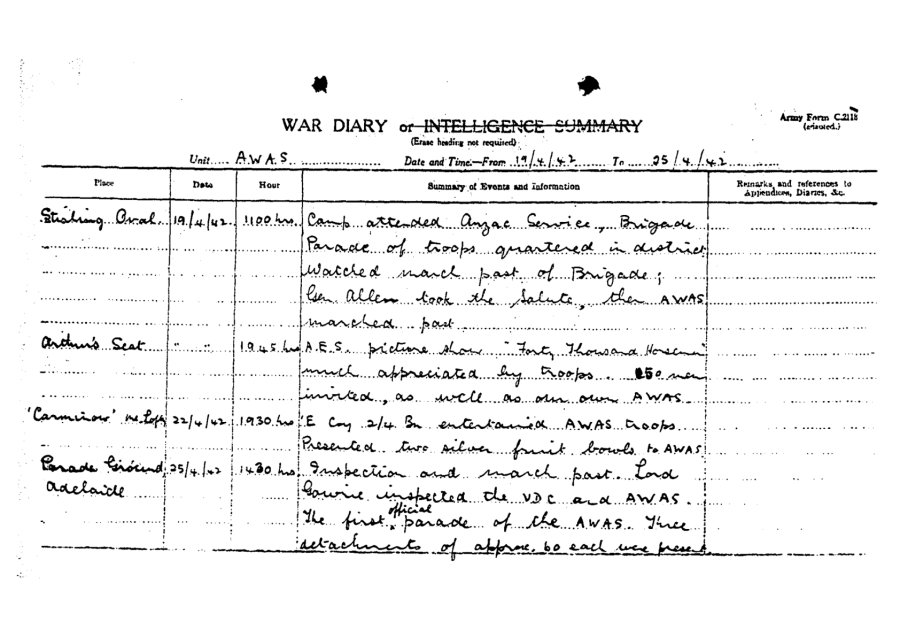 Army Form C.2118
(adapted.)
WAR DIARY or INTELLIGENCE SUMMARY
(Erase heading not required)
Unit A.W.A.S. Date and Time:—From 19/4/42 To 25/4/42
Place Date Hour Summary of Events and Information Remarks and references to
Appendices, Diaries, &c.
Stirling Oval. 19/4/42. 1100 hrs. Camp attended Anzac Service, Brigade
Parade of troops quartered in district
Watched march past of Brigade;
Gen Allen took the Salute, then AWAS
marched past
Arthur's Seat " " 1945 hrs A.E.S. picture show "Forty Thousand Horsemen"
much appreciated by troops. 50 men
invited, as well as our own AWAS.
'Carminow' Mt Lofty 22/4/42 1930 hrs E Coy 2/4 Bn entertained AWAS troops.
Presented two silver fruit bowls to AWAS.
Parade Ground, 25/4/42 1430 hrs. Inspection and march past. Lord
Adelaide Gowrie inspected the VDC and AWAS.
The first official parade of the AWAS. Three
detachments of approx. 60 each were present